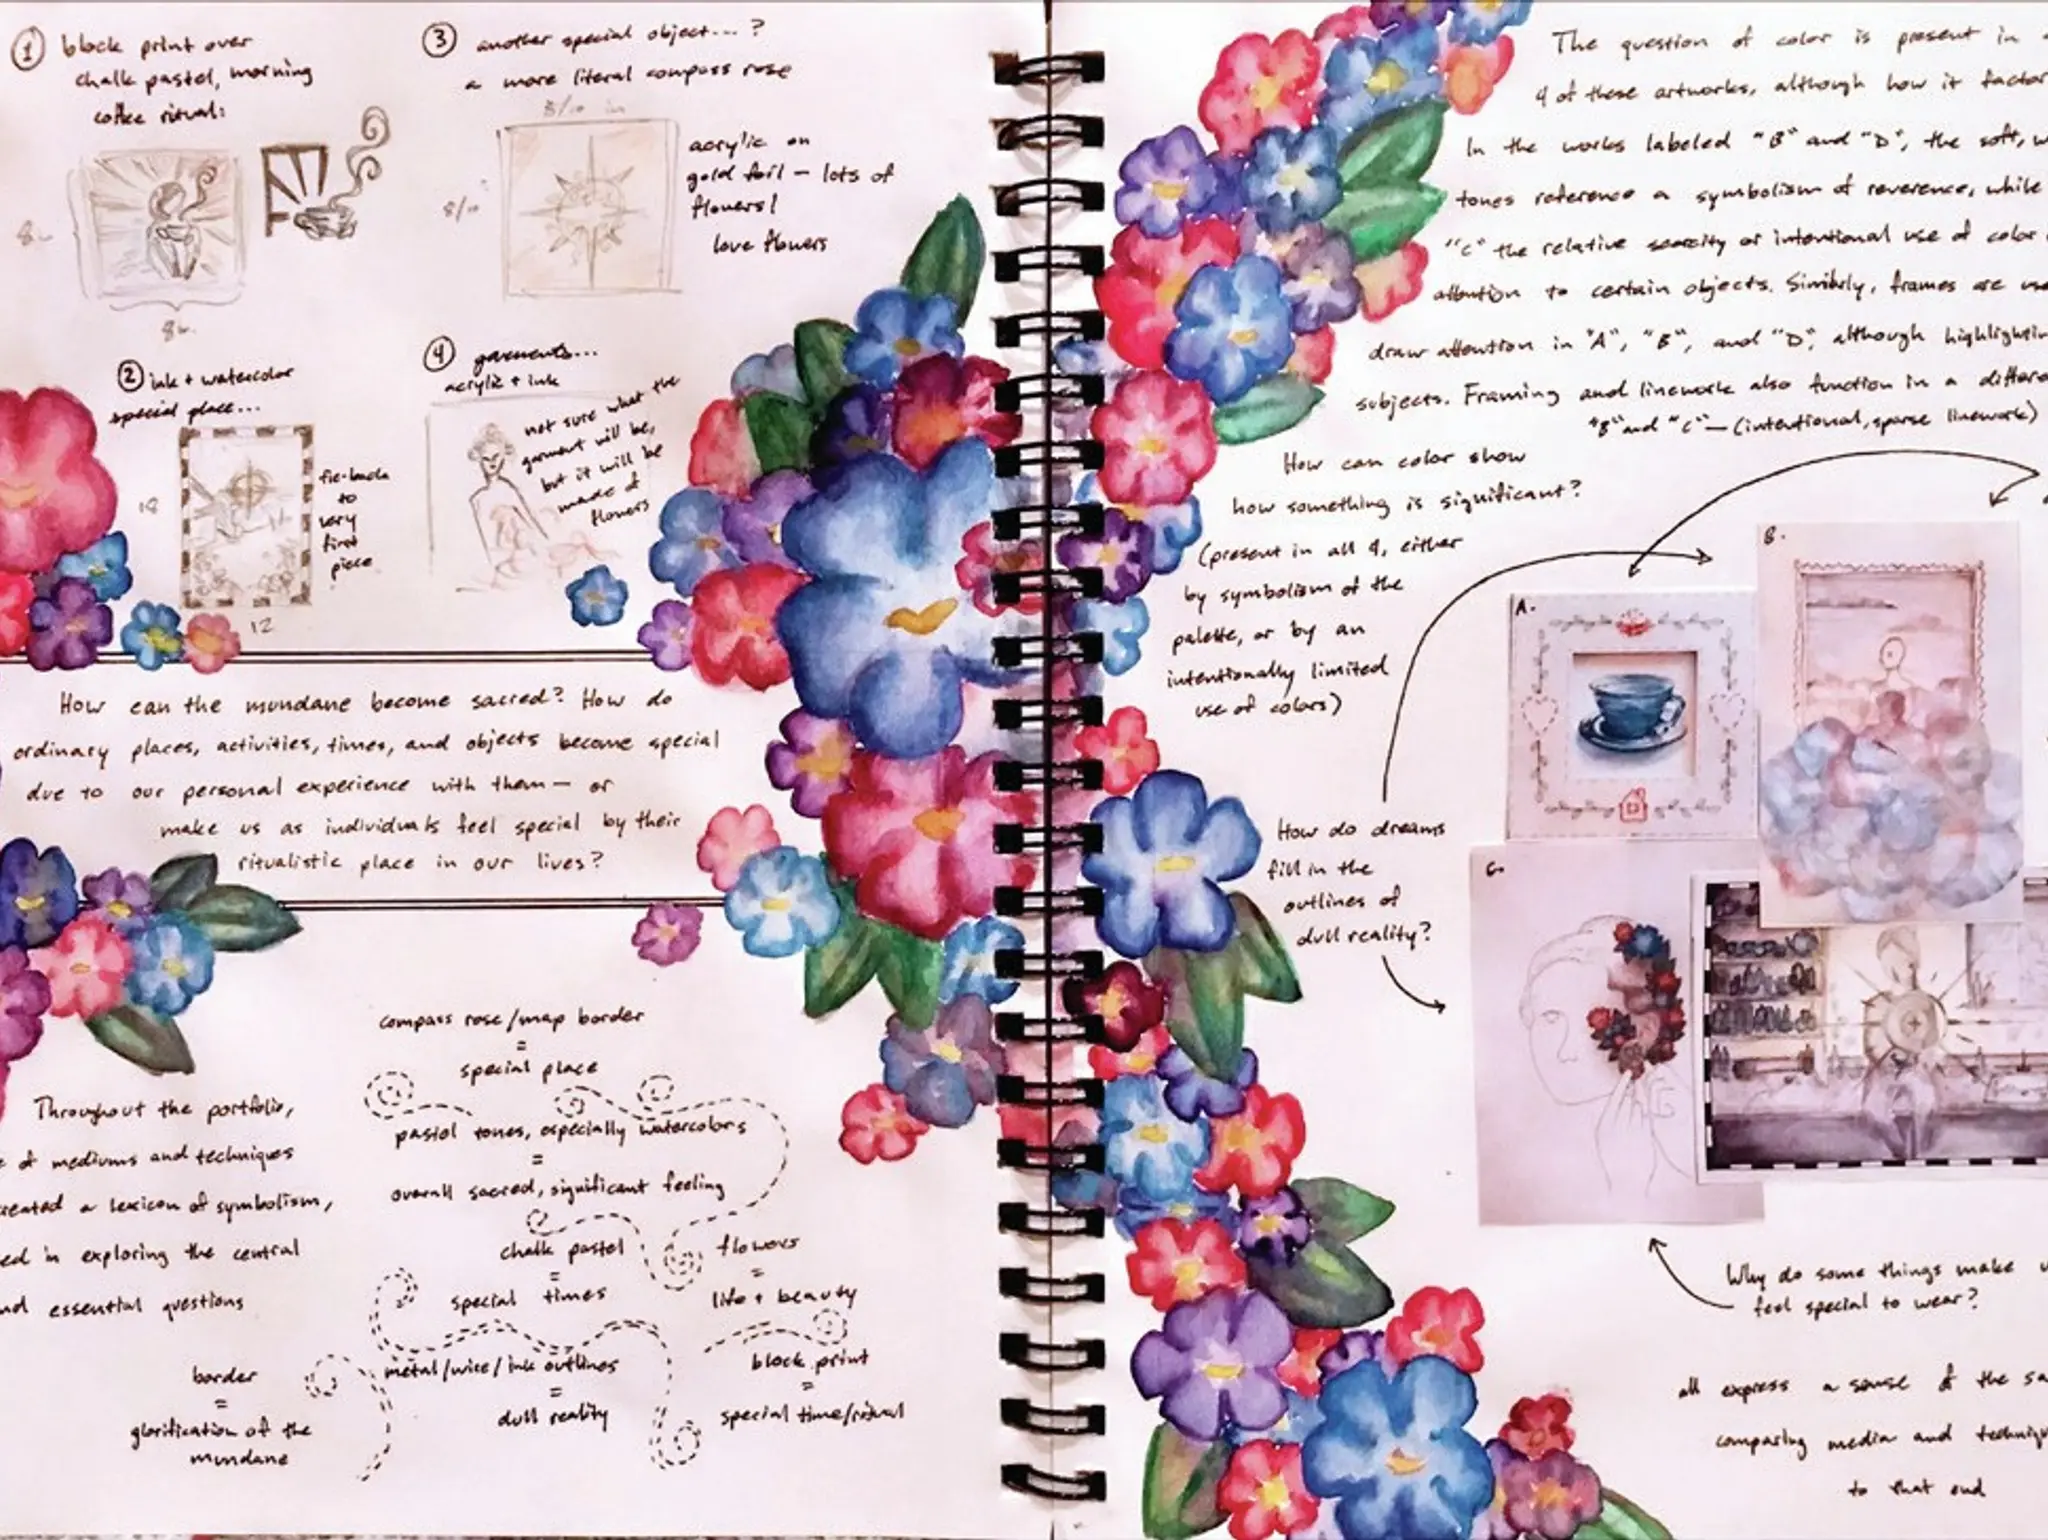 ① block print over
chalk pastel, morning
coffee ritual:
8in
8in
② ink + watercolor
special place...
18
12
tie-back
to
very
first
piece
③ another special object...?
a more literal compass rose
8/10 in
8/10
acrylic on
gold foil — lots of
flowers!
love flowers
④ garments...
acrylic + ink
not sure what the
garment will be,
but it will be
made of
flowers
How can the mundane become sacred? How do
ordinary places, activities, times, and objects become special
due to our personal experience with them — or
make us as individuals feel special by their
ritualistic place in our lives?
Throughout the portfolio,
of mediums and techniques
created a lexicon of symbolism,
ed in exploring the central
and essential questions
compass rose/map border
=
special place
pastel tones, especially watercolors
=
overall sacred, significant feeling
chalk pastel
=
special times
flowers
=
life + beauty
border
=
glorification of the
mundane
metal/wire/ink outlines
=
dull reality
block print
=
special time/ritual
The question of color is present in
4 of these artworks, although how it factor
In the works labeled "B" and "D", the soft, w
tones reference a symbolism of reverence, while
"C" the relative scarcity or intentional use of color
attention to certain objects. Similarly, frames are use
draw attention in "A", "B", and "D", although highlightin
subjects. Framing and linework also function in a differe
"B" and "C" — (intentional, sparse linework)
How can color show
how something is significant?
(present in all 4, either
by symbolism of the
palette, or by an
intentionally limited
use of colors)
A.
B.
C.
How do dreams
fill in the
outlines of
dull reality?
Why do some things make u
feel special to wear?
all express a sense of the sa
comparing media and techniqu
to that end